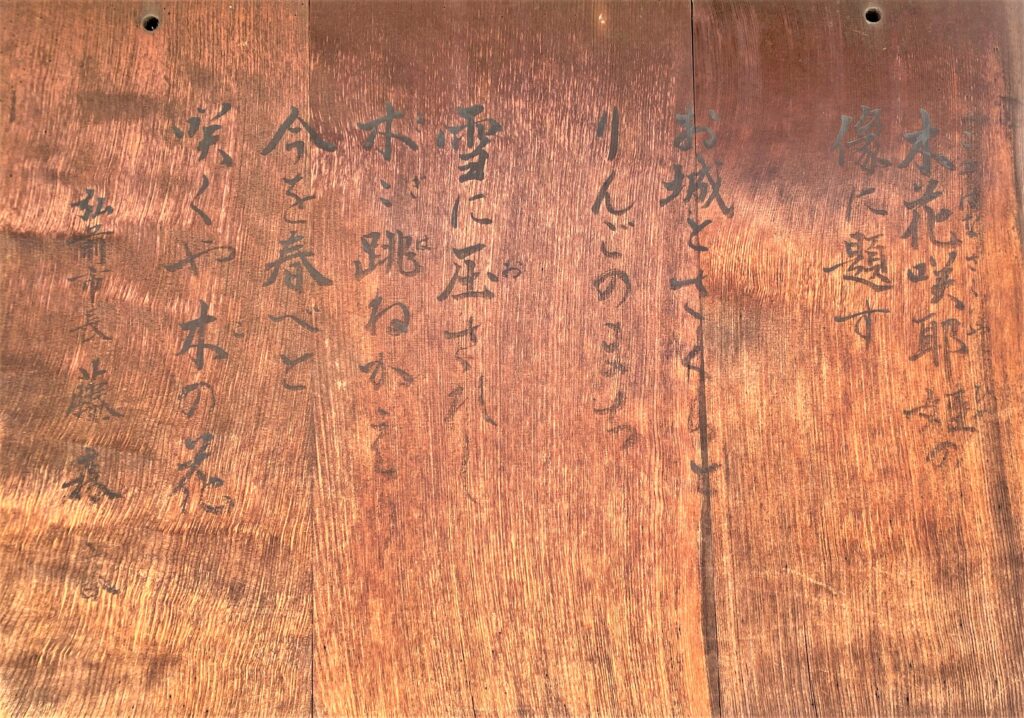 木花咲耶姫の
像に題す
お城とさくらと
りんごのまち
雪に圧されし
木々跳ねかえし
今を春べと
咲くや木の花
弘前市長 藤森